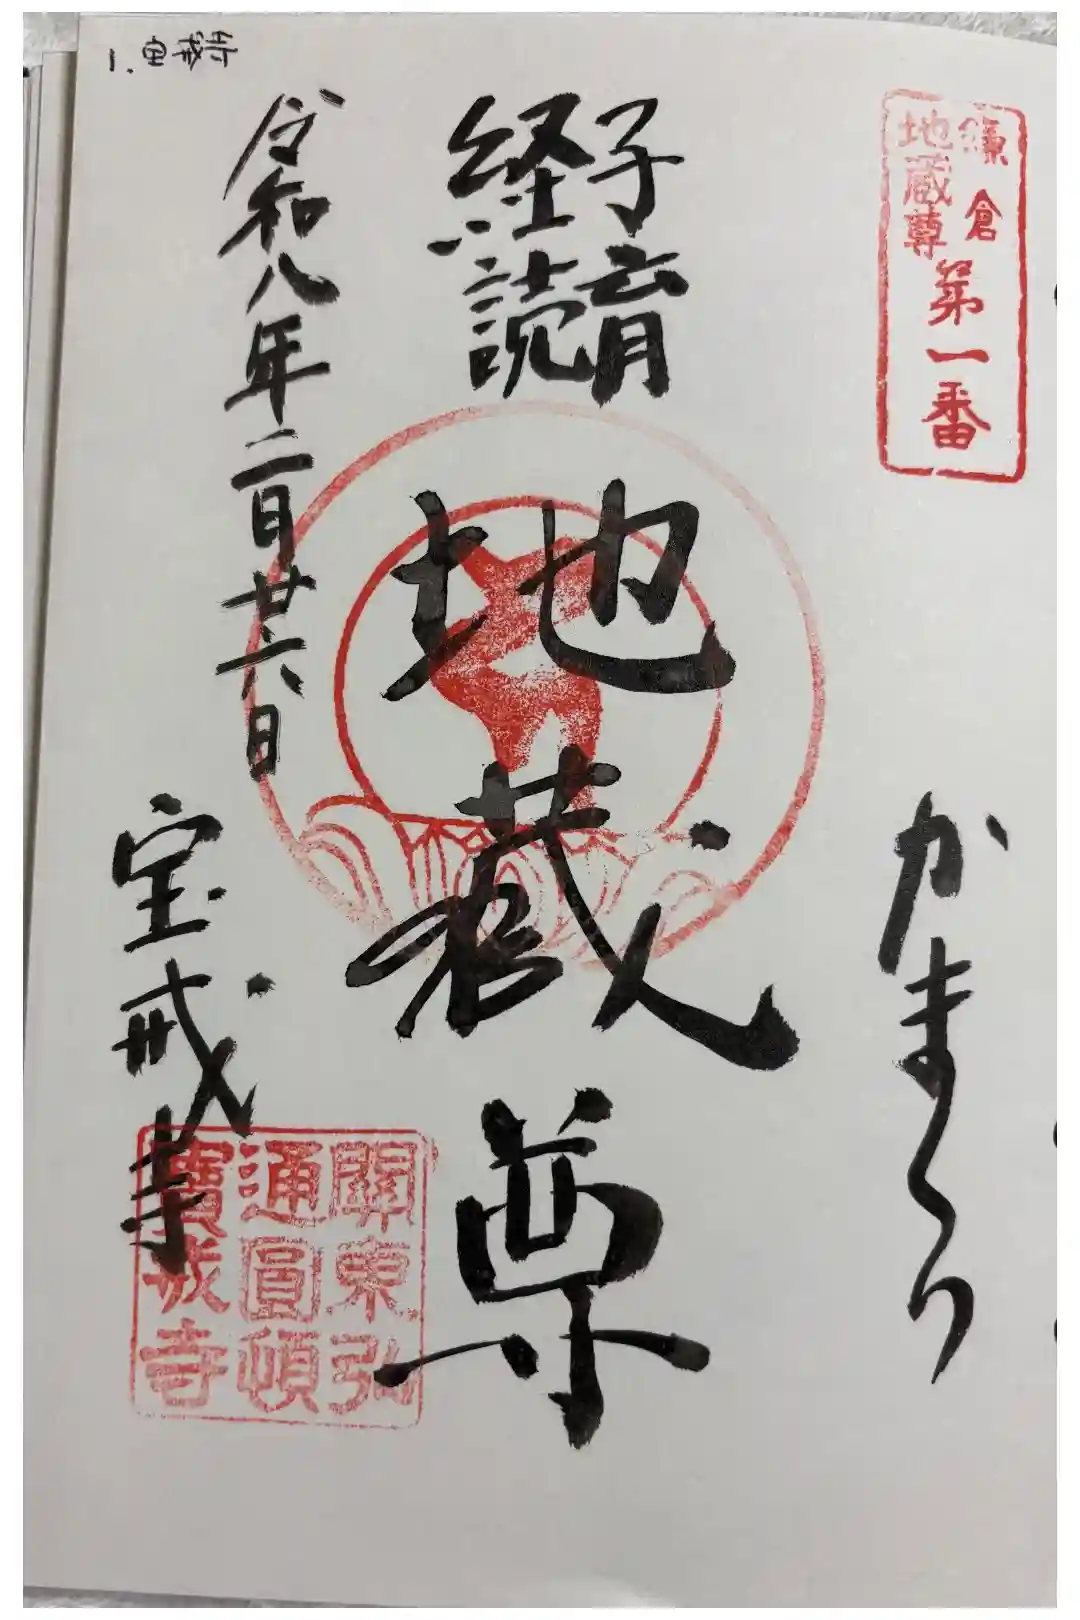 1. 宝戒寺
鎌倉
地蔵尊
第一番
かまくら
子育
経読
地蔵尊
令和八年二月廿六日
宝戒寺
關東弘
通圓頓
寶戒寺